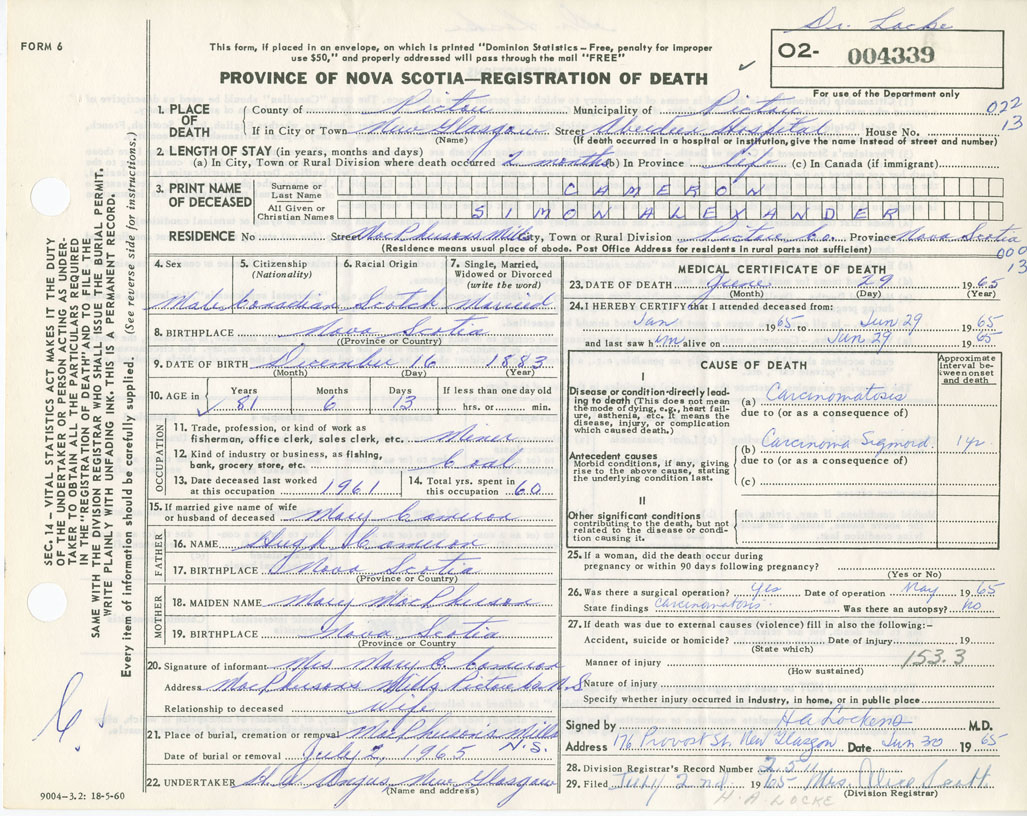 Dr. Locke
FORM 6
This form, if placed in an envelope, on which is printed "Dominion Statistics – Free, penalty for improper
use $50," and properly addressed will pass through the mail "FREE"
O2- 004339
PROVINCE OF NOVA SCOTIA—REGISTRATION OF DEATH
For use of the Department only
1. PLACE OF DEATH
County of Pictou Municipality of Pictou 022
If in City or Town New Glasgow Street Aberdeen Hospital House No. 13
(Name) (If death occurred in a hospital or institution, give the name instead of street and number)
2. LENGTH OF STAY (in years, months and days)
(a) In City, Town or Rural Division where death occurred 2 months (b) In Province Life (c) In Canada (if immigrant)
3. PRINT NAME OF DECEASED
Surname or Last Name CAMERON
All Given or Christian Names SIMON ALEXANDER
RESIDENCE No Street MacPhersons Mills City, Town or Rural Division Pictou Co. Province Nova Scotia
(Residence means usual place of abode. Post Office Address for residents in rural parts not sufficient)
000
13
4. Sex 5. Citizenship (Nationality) 6. Racial Origin 7. Single, Married, Widowed or Divorced (write the word)
Male Canadian Scotch Married
8. BIRTHPLACE Nova Scotia
(Province or Country)
9. DATE OF BIRTH December 16 1883
(Month) (Day) (Year)
10. AGE in Years Months Days If less than one day old
81 6 13 hrs. or min.
OCCUPATION
11. Trade, profession, or kind of work as fisherman, office clerk, sales clerk, etc. Miner
12. Kind of industry or business, as fishing, bank, grocery store, etc. Coal
13. Date deceased last worked at this occupation 1961 14. Total yrs. spent in this occupation 60
15. If married give name of wife or husband of deceased Mary Cameron
FATHER
16. NAME Hugh Cameron
17. BIRTHPLACE Nova Scotia
(Province or Country)
MOTHER
18. MAIDEN NAME Mary MacPherson
19. BIRTHPLACE Nova Scotia
(Province or Country)
20. Signature of informant Mrs Mary C. Cameron
Address MacPhersons Mills Pictou Co N.S
Relationship to deceased Wife
21. Place of burial, cremation or removal MacPherson's Mills
N.S.
Date of burial or removal July 2, 1965
22. UNDERTAKER Angus, New Glasgow
(Name and address)
9004–3.2: 18-5-60
MEDICAL CERTIFICATE OF DEATH
23. DATE OF DEATH June 29 1965
(Month) (Day) (Year)
24. I HEREBY CERTIFY that I attended deceased from:
Jan 1965 to Jun 29 1965
and last saw him alive on Jun 29 1965
CAUSE OF DEATH
Approximate Interval between onset and death
I
Disease or condition directly leading to death (This does not mean the mode of dying, e.g., heart failure, asthenia, etc. It means the disease, injury, or complication which caused death.)
(a) Carcinomatosis
due to (or as a consequence of)
Antecedent causes
Morbid conditions, if any, giving rise to the above cause, stating the underlying condition last.
(b) Carcinoma Sigmoid. 1 yr.
due to (or as a consequence of)
(c)
II
Other significant conditions
contributing to the death, but not related to the disease or condition causing it.
25. If a woman, did the death occur during
pregnancy or within 90 days following pregnancy?
(Yes or No)
26. Was there a surgical operation? Yes Date of operation May 1965
State findings Carcinomatosis Was there an autopsy? No
27. If death was due to external causes (violence) fill in also the following:–
Accident, suicide or homicide? Date of injury 19
(State which)
Manner of injury 153.3
(How sustained)
Nature of injury
Specify whether injury occurred in industry, in home, or in public place
Signed by H A Locke M.D.
Address 176 Provost St. New Glasgow Date Jun 30 1965
28. Division Registrar's Record Number
29. Filed July 2nd 1965 Mrs. Scott
(Division Registrar)
H. A. LOCKE
SEC. 14 – VITAL STATISTICS ACT MAKES IT THE DUTY
OF THE UNDERTAKER OR PERSON ACTING AS UNDER-
TAKER TO OBTAIN ALL THE PARTICULARS REQUIRED
IN THE "REGISTRATION OF DEATH" AND TO FILE THE
SAME WITH THE DIVISION REGISTRAR WHO SHALL ISSUE THE BURIAL PERMIT.
WRITE PLAINLY WITH UNFADING INK. THIS IS A PERMANENT RECORD.
Every item of information should be carefully supplied. (See reverse side for instructions.)